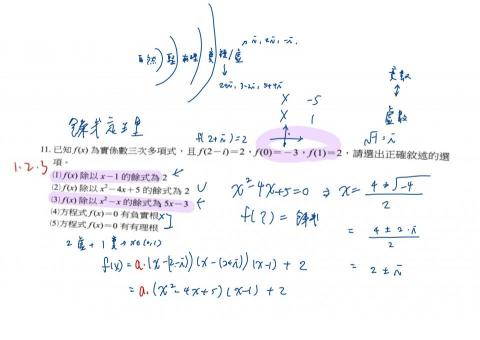 自然 整 有理 實 複/虛
i, 2i, -i
2+i, 3-2i, 5+4i
x -5
x 1
實數
虛數
√-1 = i
餘式定理
f(2+i)=2
11. 已知 f(x) 為實係數三次多項式，且 f(2-i)=2，f(0)=-3，f(1)=2，請選出正確敘述的選
項。
1.2.3
(1) f(x) 除以 x-1 的餘式為 2
(2) f(x) 除以 x²-4x+5 的餘式為 2
(3) f(x) 除以 x²-x 的餘式為 5x-3
(4) 方程式 f(x)=0 有負實根 x
(5) 方程式 f(x)=0 有有理根
x²-4x+5=0 ⇒ x = 4±√-4 / 2
f(2) = 餘式
= 4±2·i / 2
= 2±i
2虛+1實→x∈(0,1)
f(x) = a·(x-(2-i))(x-(2+i))(x-1)+2
= a·(x²-4x+5)(x-1)+2